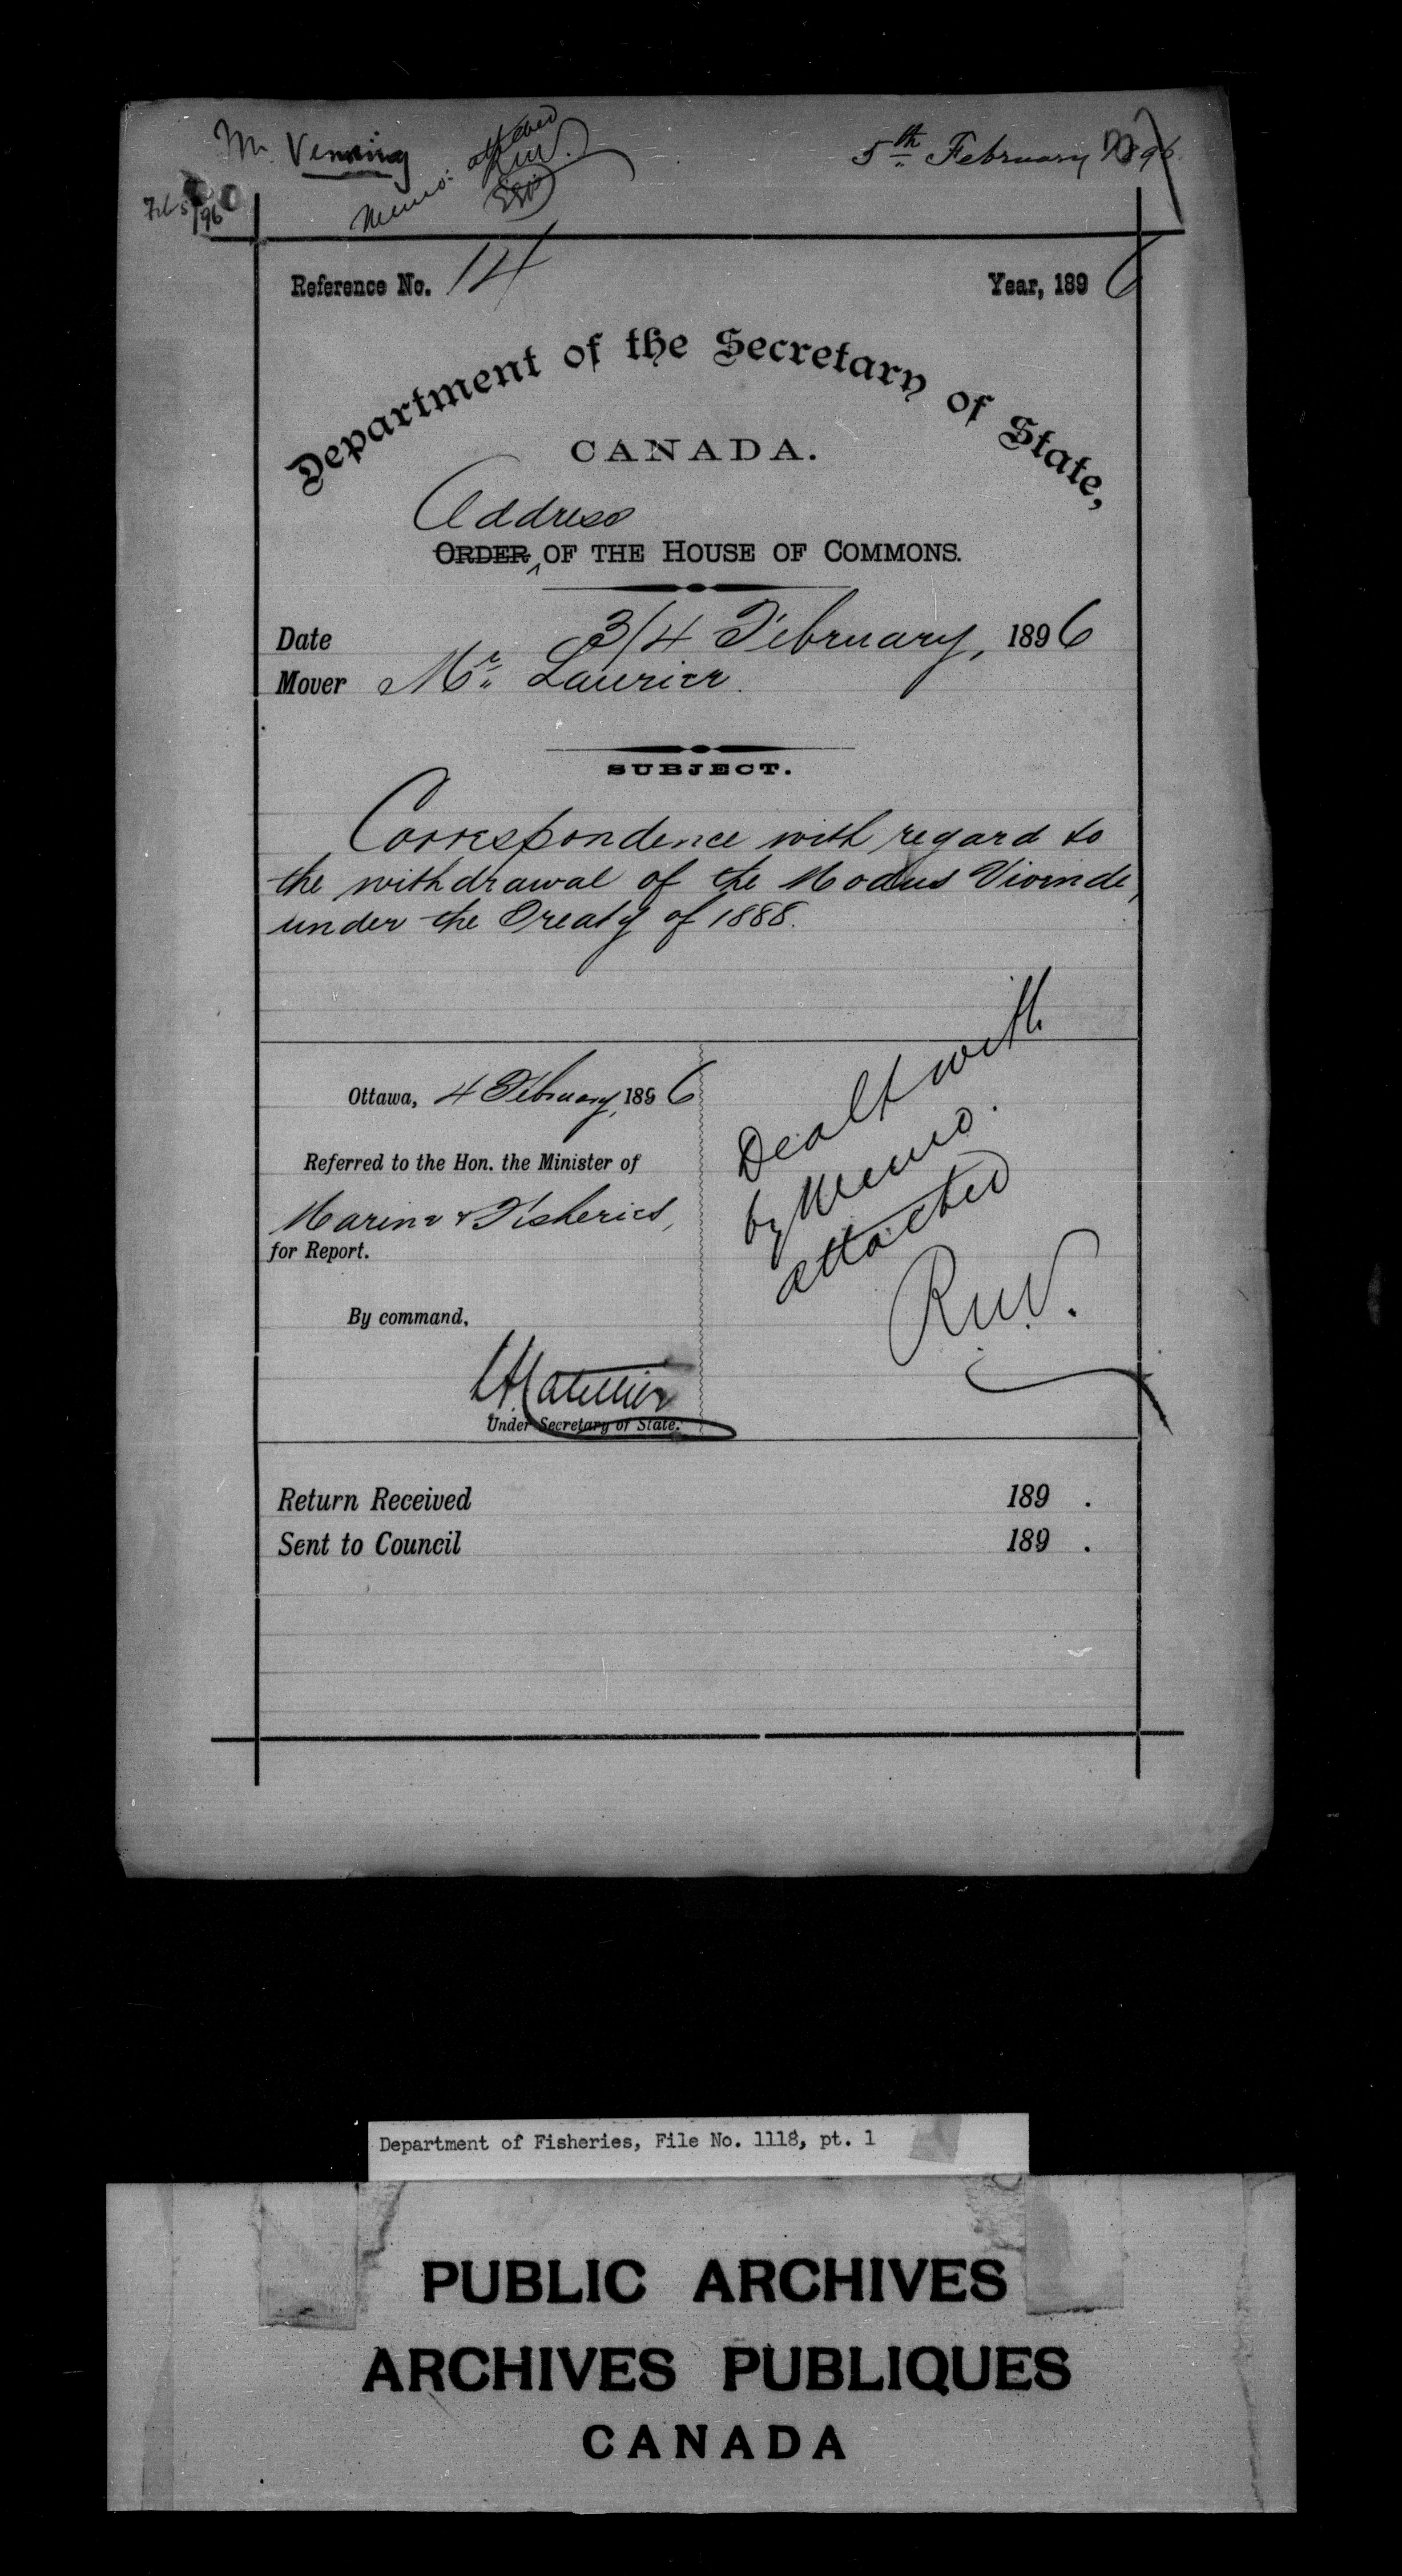 Mr Venning
Memo: attached
RWV.
5th February 1896
Feb 5/96
Reference No. 14
Year, 1896
Department of the Secretary of State,
CANADA.
Address
ORDER OF THE HOUSE OF COMMONS.
Date 3/4 February, 1896
Mover Mr. Laurier.
SUBJECT.
Correspondence with regard to
the withdrawal of the Modus Vivende,
under the Treaty of 1888.
Ottawa, 4 February, 1896
Referred to the Hon. the Minister of
Marine & Fisheries,
for Report.
By command,
Under Secretary of State.
Dealt with
by Memo.
attached
RWV.
Return Received 189 .
Sent to Council 189 .
Department of Fisheries, File No. 1118, pt. 1
PUBLIC ARCHIVES
ARCHIVES PUBLIQUES
CANADA